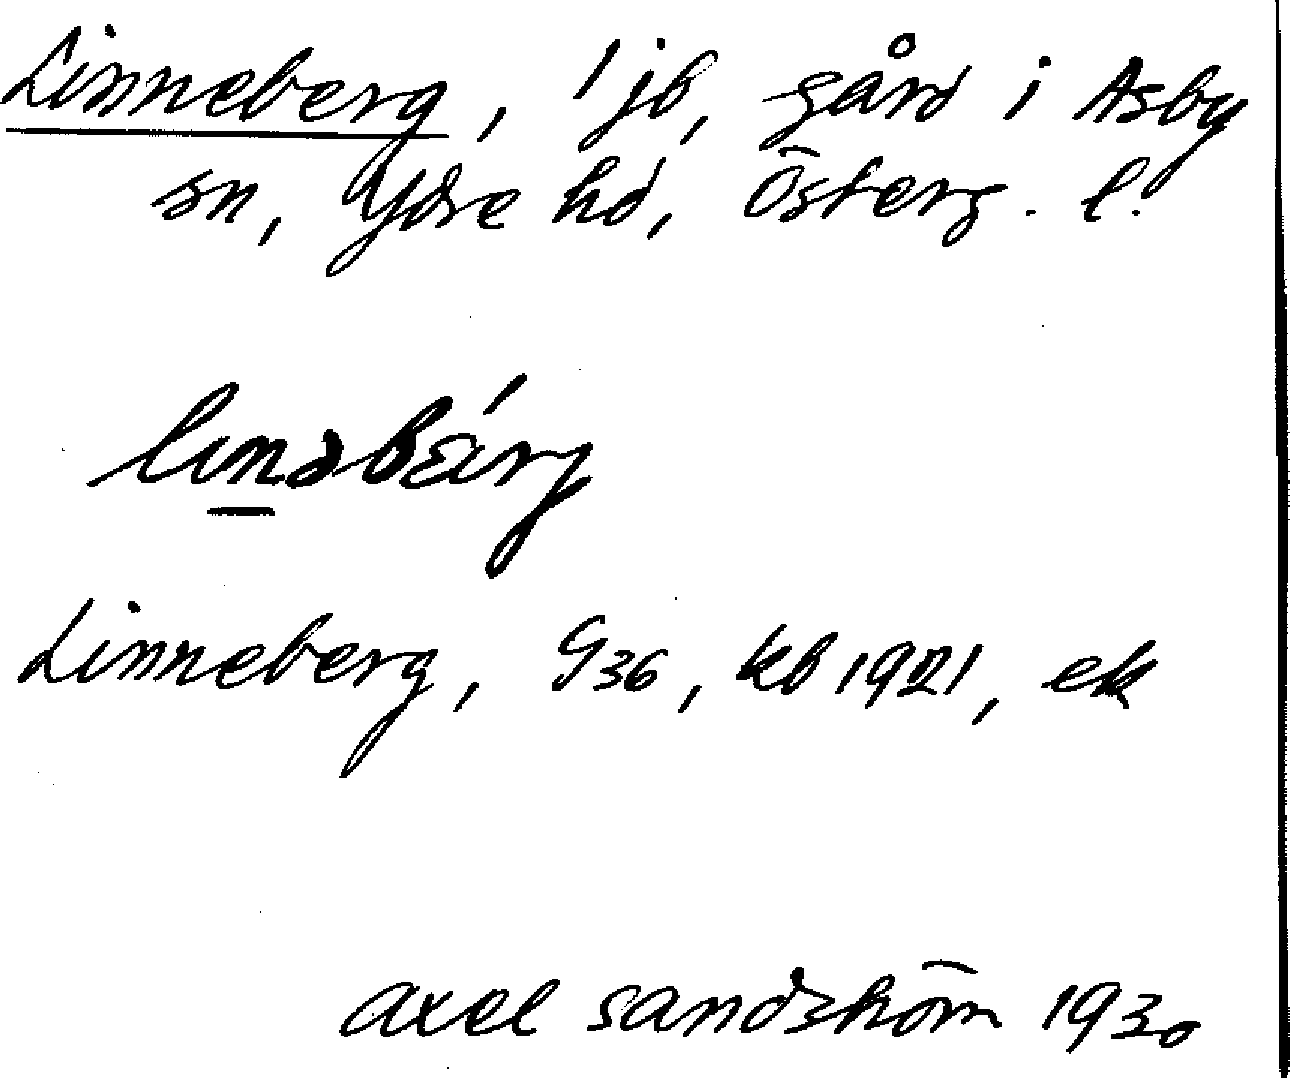 Linneberg, 1 jb, gård i Asby
sn, Ydre hd, Österg. l.
Linneberg, G36, kb 1921, ek
axel sandström 1930